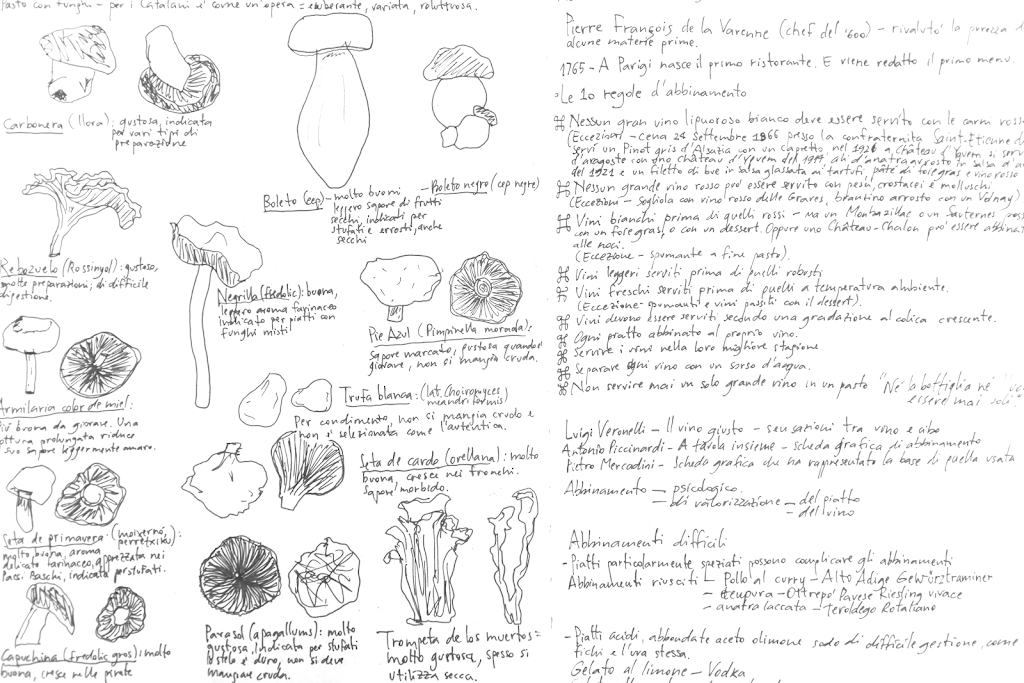 Pasto con funghi - per i Catalani e' come un'opera = esuberante, variata, voluttuosa.
Carbonera (llora); gustosa, indicata
per vari tipi di
preparazione
Rebozuelo (Rossinyol): gustoso,
molte preparazioni; di difficile
digestione.
Armilaria color de miel:
piu' buona da giovane. Una
cottura prolungata riduce
suo sapore leggermente amaro.
Seta de primavera (moixernó,
perretxiku):
molto buona, aroma
delicato farinaceo, apprezzata nei
Paesi Baschi, indicata per stufati.
Capuchina (fredolic gros): molto
buona, cresce nelle pinete
Boleto (cep) - molto buoni
leggero sapore di frutti
secchi, indicati per
stufati e arrosti, anche
secchi
- Boleto negro (cep negre)
Negrilla (fredolic): buona,
leggero aroma farinaceo
indicato per piatti con
funghi misti
Pie Azul (Pimpinella morada):
Sapore marcato, gustosa quando e'
giovane, non si mangia cruda.
Trufa blanca: (lat. Choiromyces
meandriformis)
Per condimento, non si mangia crudo e
non e' selezionata come l'autentica.
Seta de cardo (orellana): molto
buona, cresce nei tronchi.
Sapore morbido.
Parasol (apagallums): molto
gustosa, indicata per stufati
lo stelo e' duro, non si deve
mangiare cruda.
Trompeta de los muertos =
molto gustosa, spesso si
utilizza secca.
Pierre François de la Varenne (chef del '600) - rivaluto' la purezza di
alcune materie prime.
1765 - A Parigi nasce il primo ristorante. E viene redatto il primo menu.
Le 10 regole d'abbinamento
⌘ Nessun gran vino liquoroso bianco deve essere servito con le carni ross
(Eccezioni - Cena 24 Settembre 1966 presso la confraternita Saint-Etienne d
servì un Pinot gris d'Alsazia con un Capretto, nel 1926 a Château d'Yquem si serv
d'aragoste con uno château d'Yquem del 1914, ali d'anatra arrosto in salsa
del 1921 e un filetto di bue in salsa glassata ai tartufi, pâté di foie gras e vino rosso
⌘ Nessun grande vino rosso puo' essere servito con pesci, crostacei e molluschi
(Eccezioni - Sogliola con vino rosso delle Graves, branzino arrosto con un Volnay)
⌘ Vini bianchi prima di quelli rossi - ma un Monbazillac o un Sauternes poss
con un foie gras, o con un dessert. Oppure uno Château-Chalon puo' essere abbinat
alle noci.
(Eccezione - spumante a fine pasto).
⌘ Vini leggeri serviti prima di quelli robusti
⌘ Vini freschi serviti prima di quelli a temperatura ambiente.
(Eccezione - spumanti e vini passiti con il dessert).
⌘ Vini devono essere serviti secondo una gradazione alcolica crescente.
⌘ Ogni piatto abbinato al proprio vino.
⌘ Servire i vini nella loro migliore stagione
⌘ Separare ogni vino con un sorso d'acqua.
⌘ Non servire mai un solo grande vino in un pasto "Ne' la bottiglia ne'
essere mai soli".
Luigi Veronelli - Il vino giusto - sensazioni tra vino e cibo
Antonio Piccinardi - A tavola insieme - scheda grafica di abbinamento
Pietro Mercadini - Scheda grafica che ha rappresentato la base di quella usata
Abbinamento - psicologico
- di valorizzazione - del piatto
- del vino
Abbinamenti difficili
- Piatti particolarmente speziati possono complicare gli abbinamenti
Abbinamenti riusciti - Pollo al curry - Alto Adige Gewürztraminer
- tempura - Oltrepo' Pavese Riesling vivace
- anatra laccata - Teroldego Rotaliano
- Piatti acidi, abbondate aceto o limone sono di difficile gestione, come
fichi e l'uva stessa.
Gelato al limone - Vodka